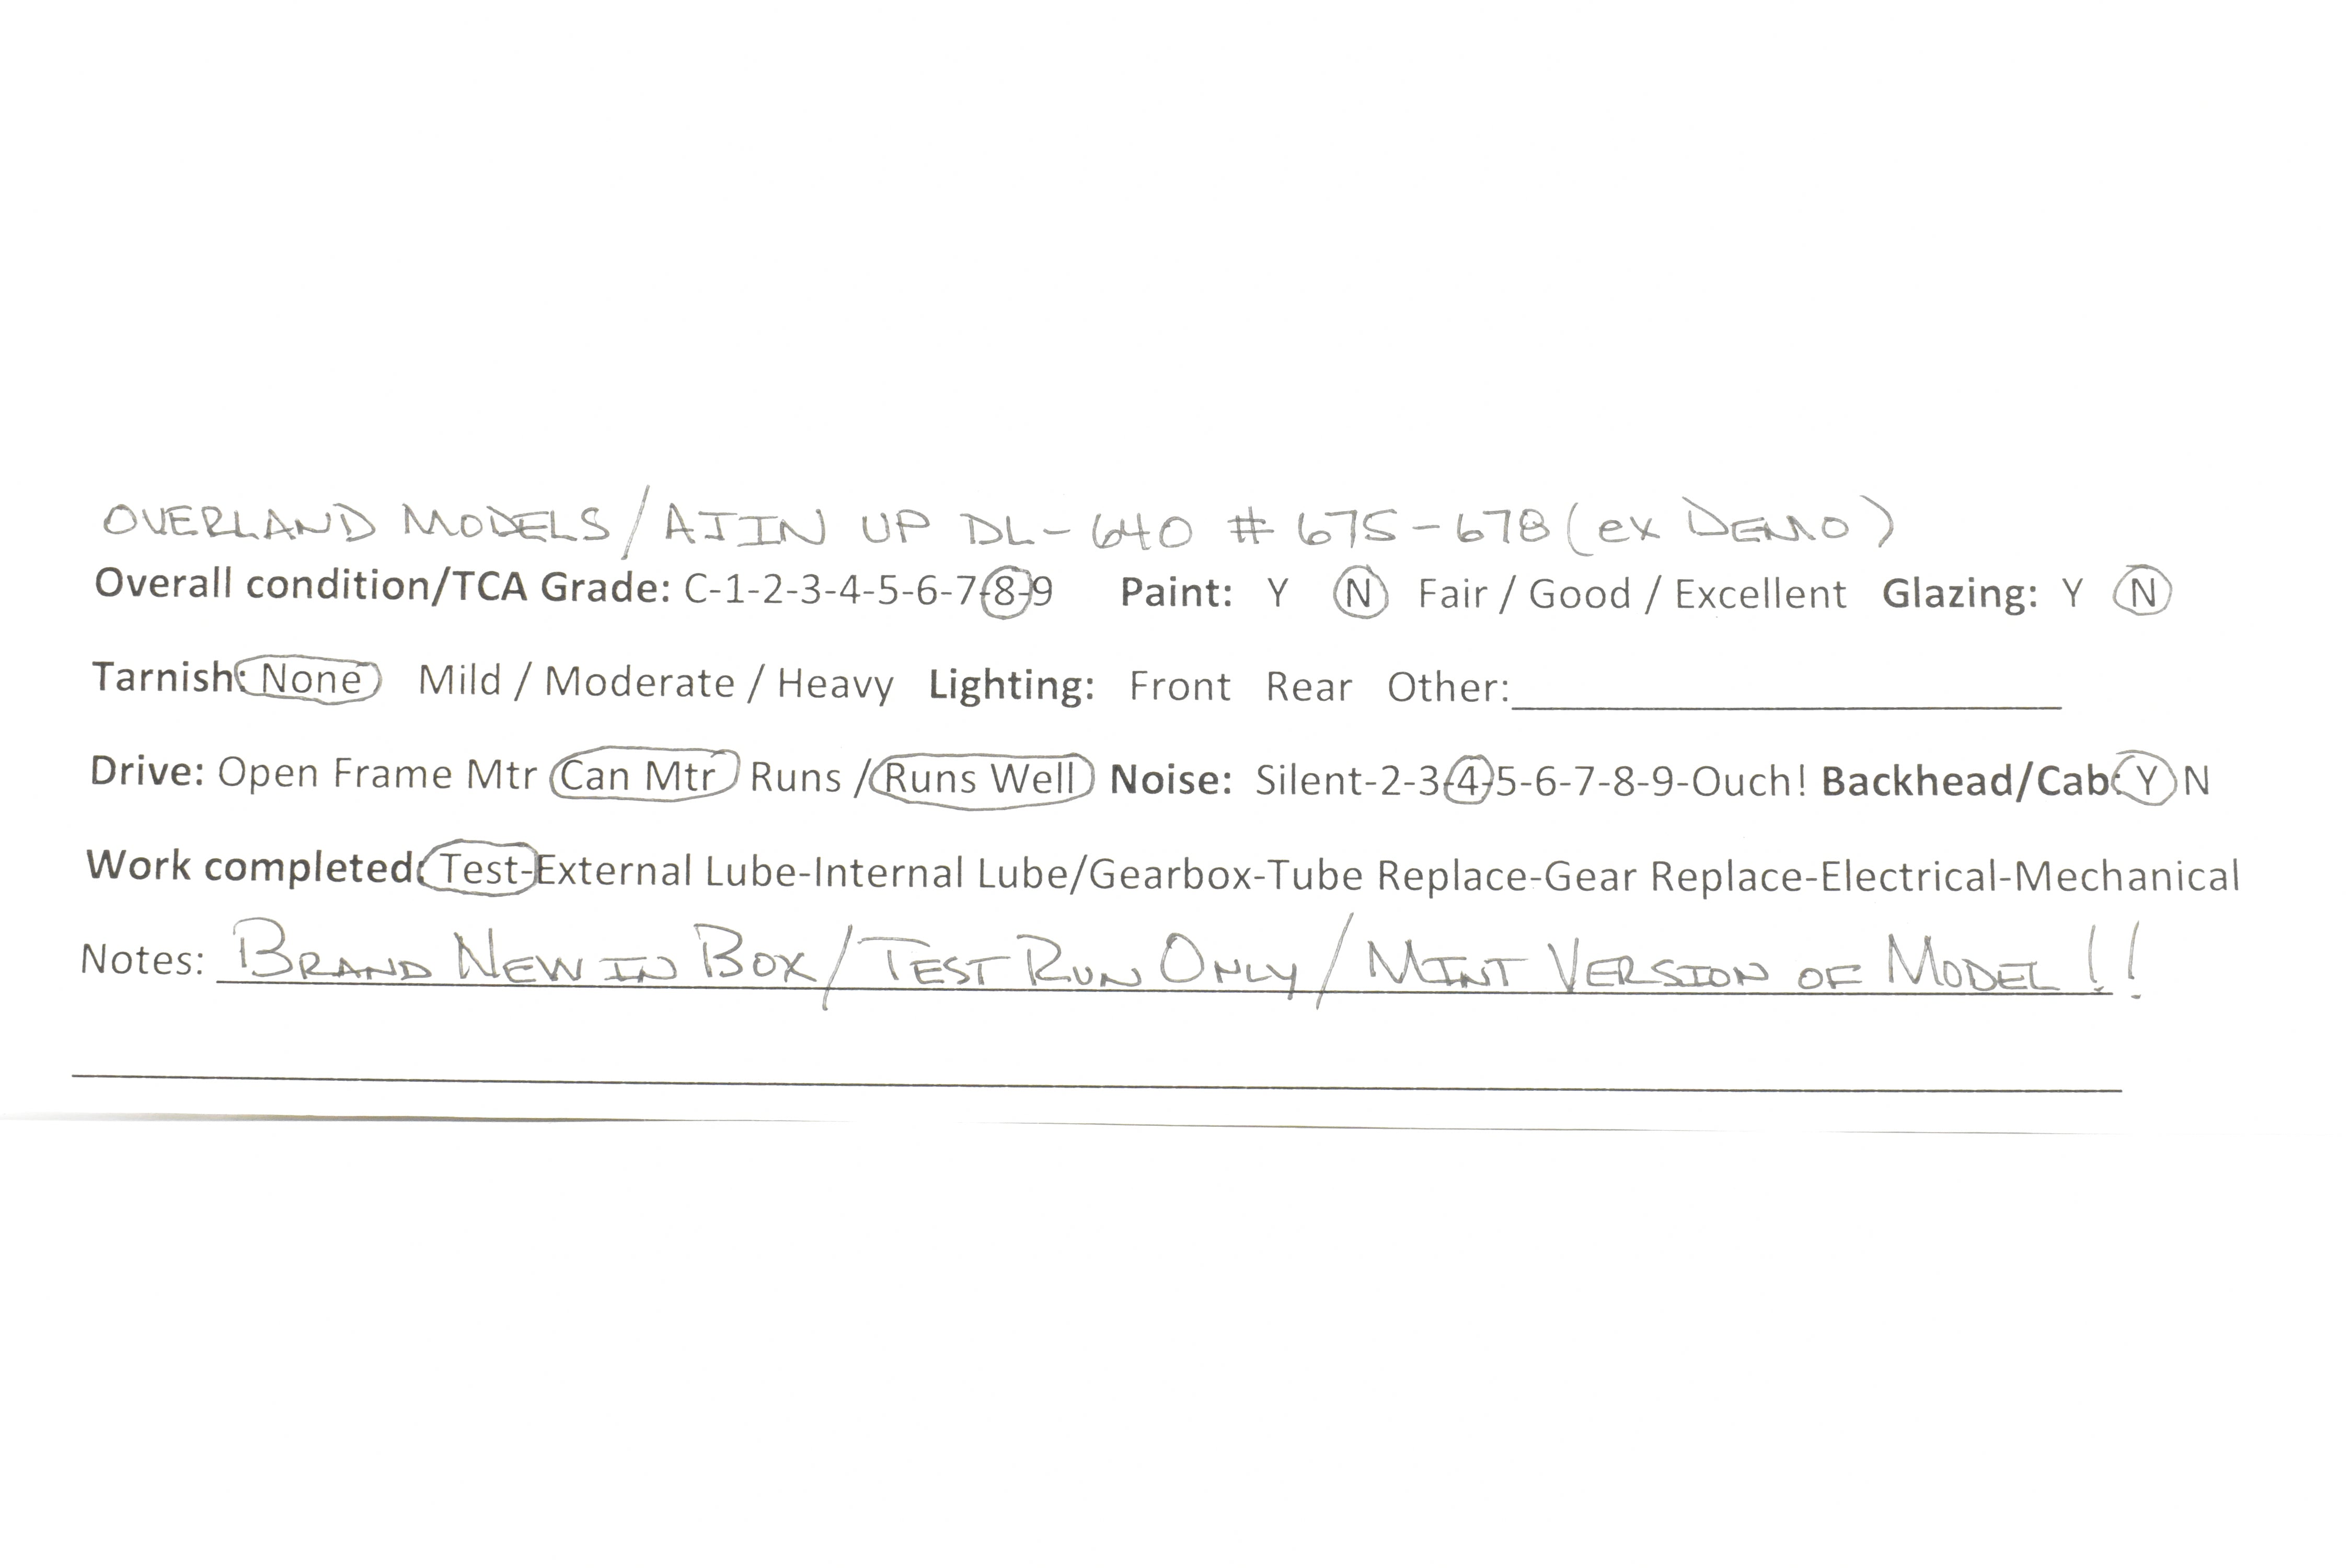 OVERLAND MODELS/AJIN UP DL-640 # 675-678 (ex DEMO)
Overall condition/TCA Grade: C-1-2-3-4-5-6-7-8-9 Paint: Y N Fair / Good / Excellent Glazing: Y N
Tarnish: None Mild / Moderate / Heavy Lighting: Front Rear Other:
Drive: Open Frame Mtr Can Mtr Runs / Runs Well Noise: Silent-2-3-4-5-6-7-8-9-Ouch! Backhead/Cab: Y N
Work completed: Test-External Lube-Internal Lube/Gearbox-Tube Replace-Gear Replace-Electrical-Mechanical
Notes: BRAND NEW IN BOX/TEST RUN ONLY/MINT VERSION OF MODEL!!